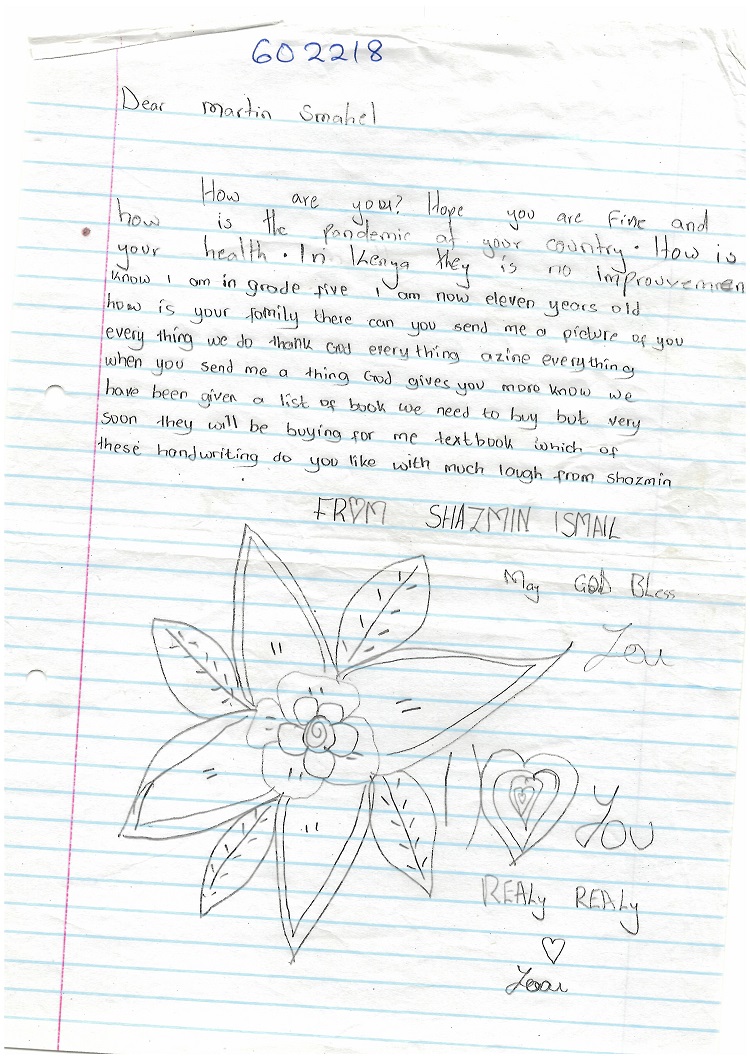 602218
Dear Martin Smahel
How are you? Hope you are fine and
how is the pandemic of your country. How is
your health. In Kenya they is no improuvemen
know I am in grade five I am now eleven years old
how is your family there can you send me a picture of you
every thing we do thank God everything azine everything
when you send me a thing God gives you more know we
have been given a list of book we need to buy but very
soon they will be buying for me textbook which of
these handwriting do you like with much lough from shazmin
FROM SHAZMIN ISMAIL
May GOD BLess
You
I You
REALy REALy